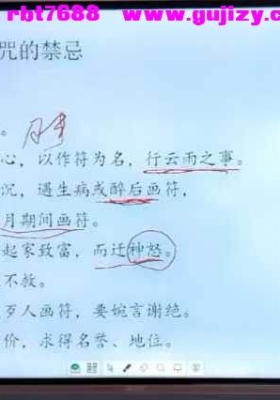 rbt7688 www.gujizy.c
咒的禁忌
。
月事
心，以作符为名，行云雨之事。
沉，遇生病或醉后画符，
月期间画符。
起家致富，而迁神怒。
不放。
歹人画符，要婉言谢绝。
价，求得名誉、地位。